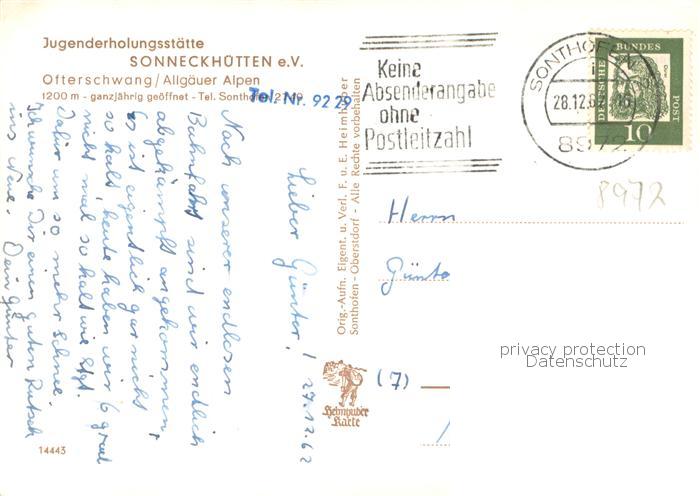 Jugenderholungsstätte
SONNECKHÜTTEN e.V.
Ofterschwang/Allgäuer Alpen
1200 m - ganzjährig geöffnet - Tel. Sonthofen
Tel. Nr. 92 29
Keine
Absenderangabe
ohne
Postleitzahl
SONTHOFEN
28.12.62
8972
DEUTSCHE BUNDES POST
10
8972
Orig.-Aufn. Eigent. u. Verl. F. u. E. Heimhuber
Sonthofen - Oberstdorf - Alle Rechte vorbehalten
27.12.62
Lieber Günter!
Nach unserer endlosen
Bahnfahrt sind wir endlich
abgekämpft angekommen.
Es ist eigentlich gar nicht
so kalt, heute haben wir 6 grad
nicht mal so kalt wie Stgt.
Dafür um so mehr Schnee.
Ich wünsche Dir einen guten Rutsch
ins Neue.
Dein Günter
Herrn
Günte
(7)
privacy protection
Datenschutz
Heimhuber
Karte
14443